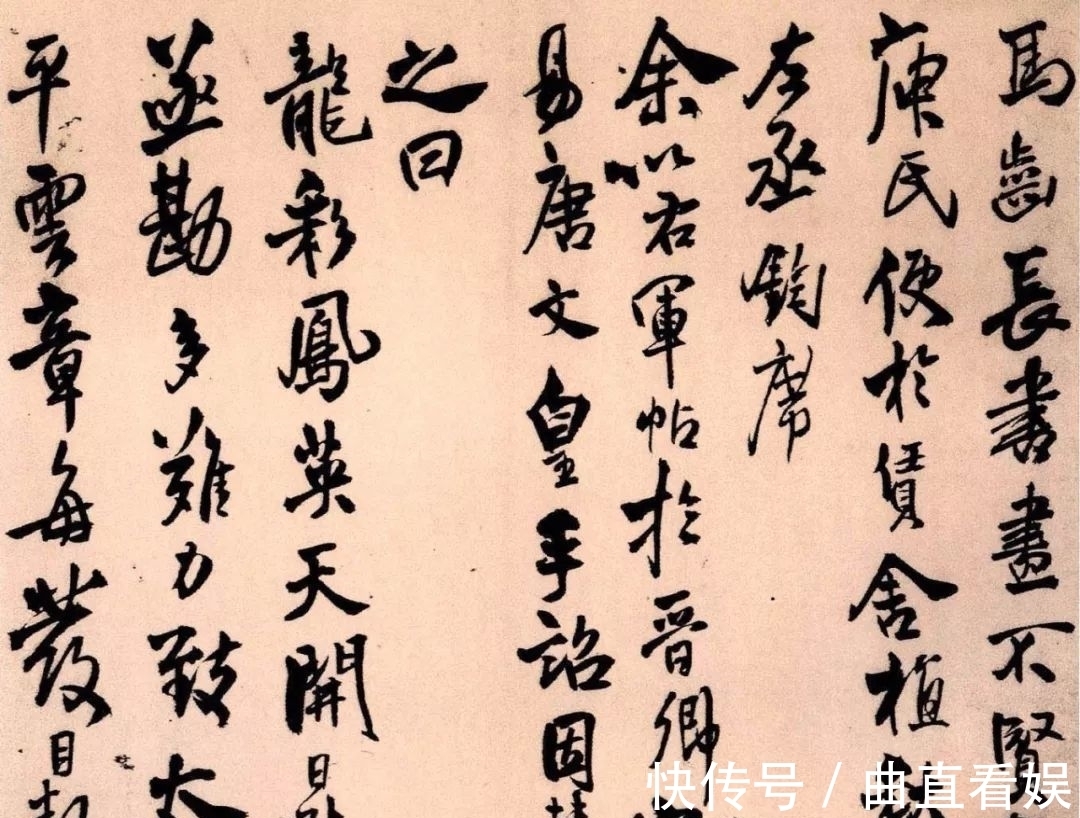 馬齒長書畫不賢
庾氏便於賃舍植
左丞鈞席
余以右軍帖於晉卿
易唐文皇手詔因
之曰
龍彩鳳英天開
遂勘多難力致太
平雲章每發
快传号 / 曲直看娱